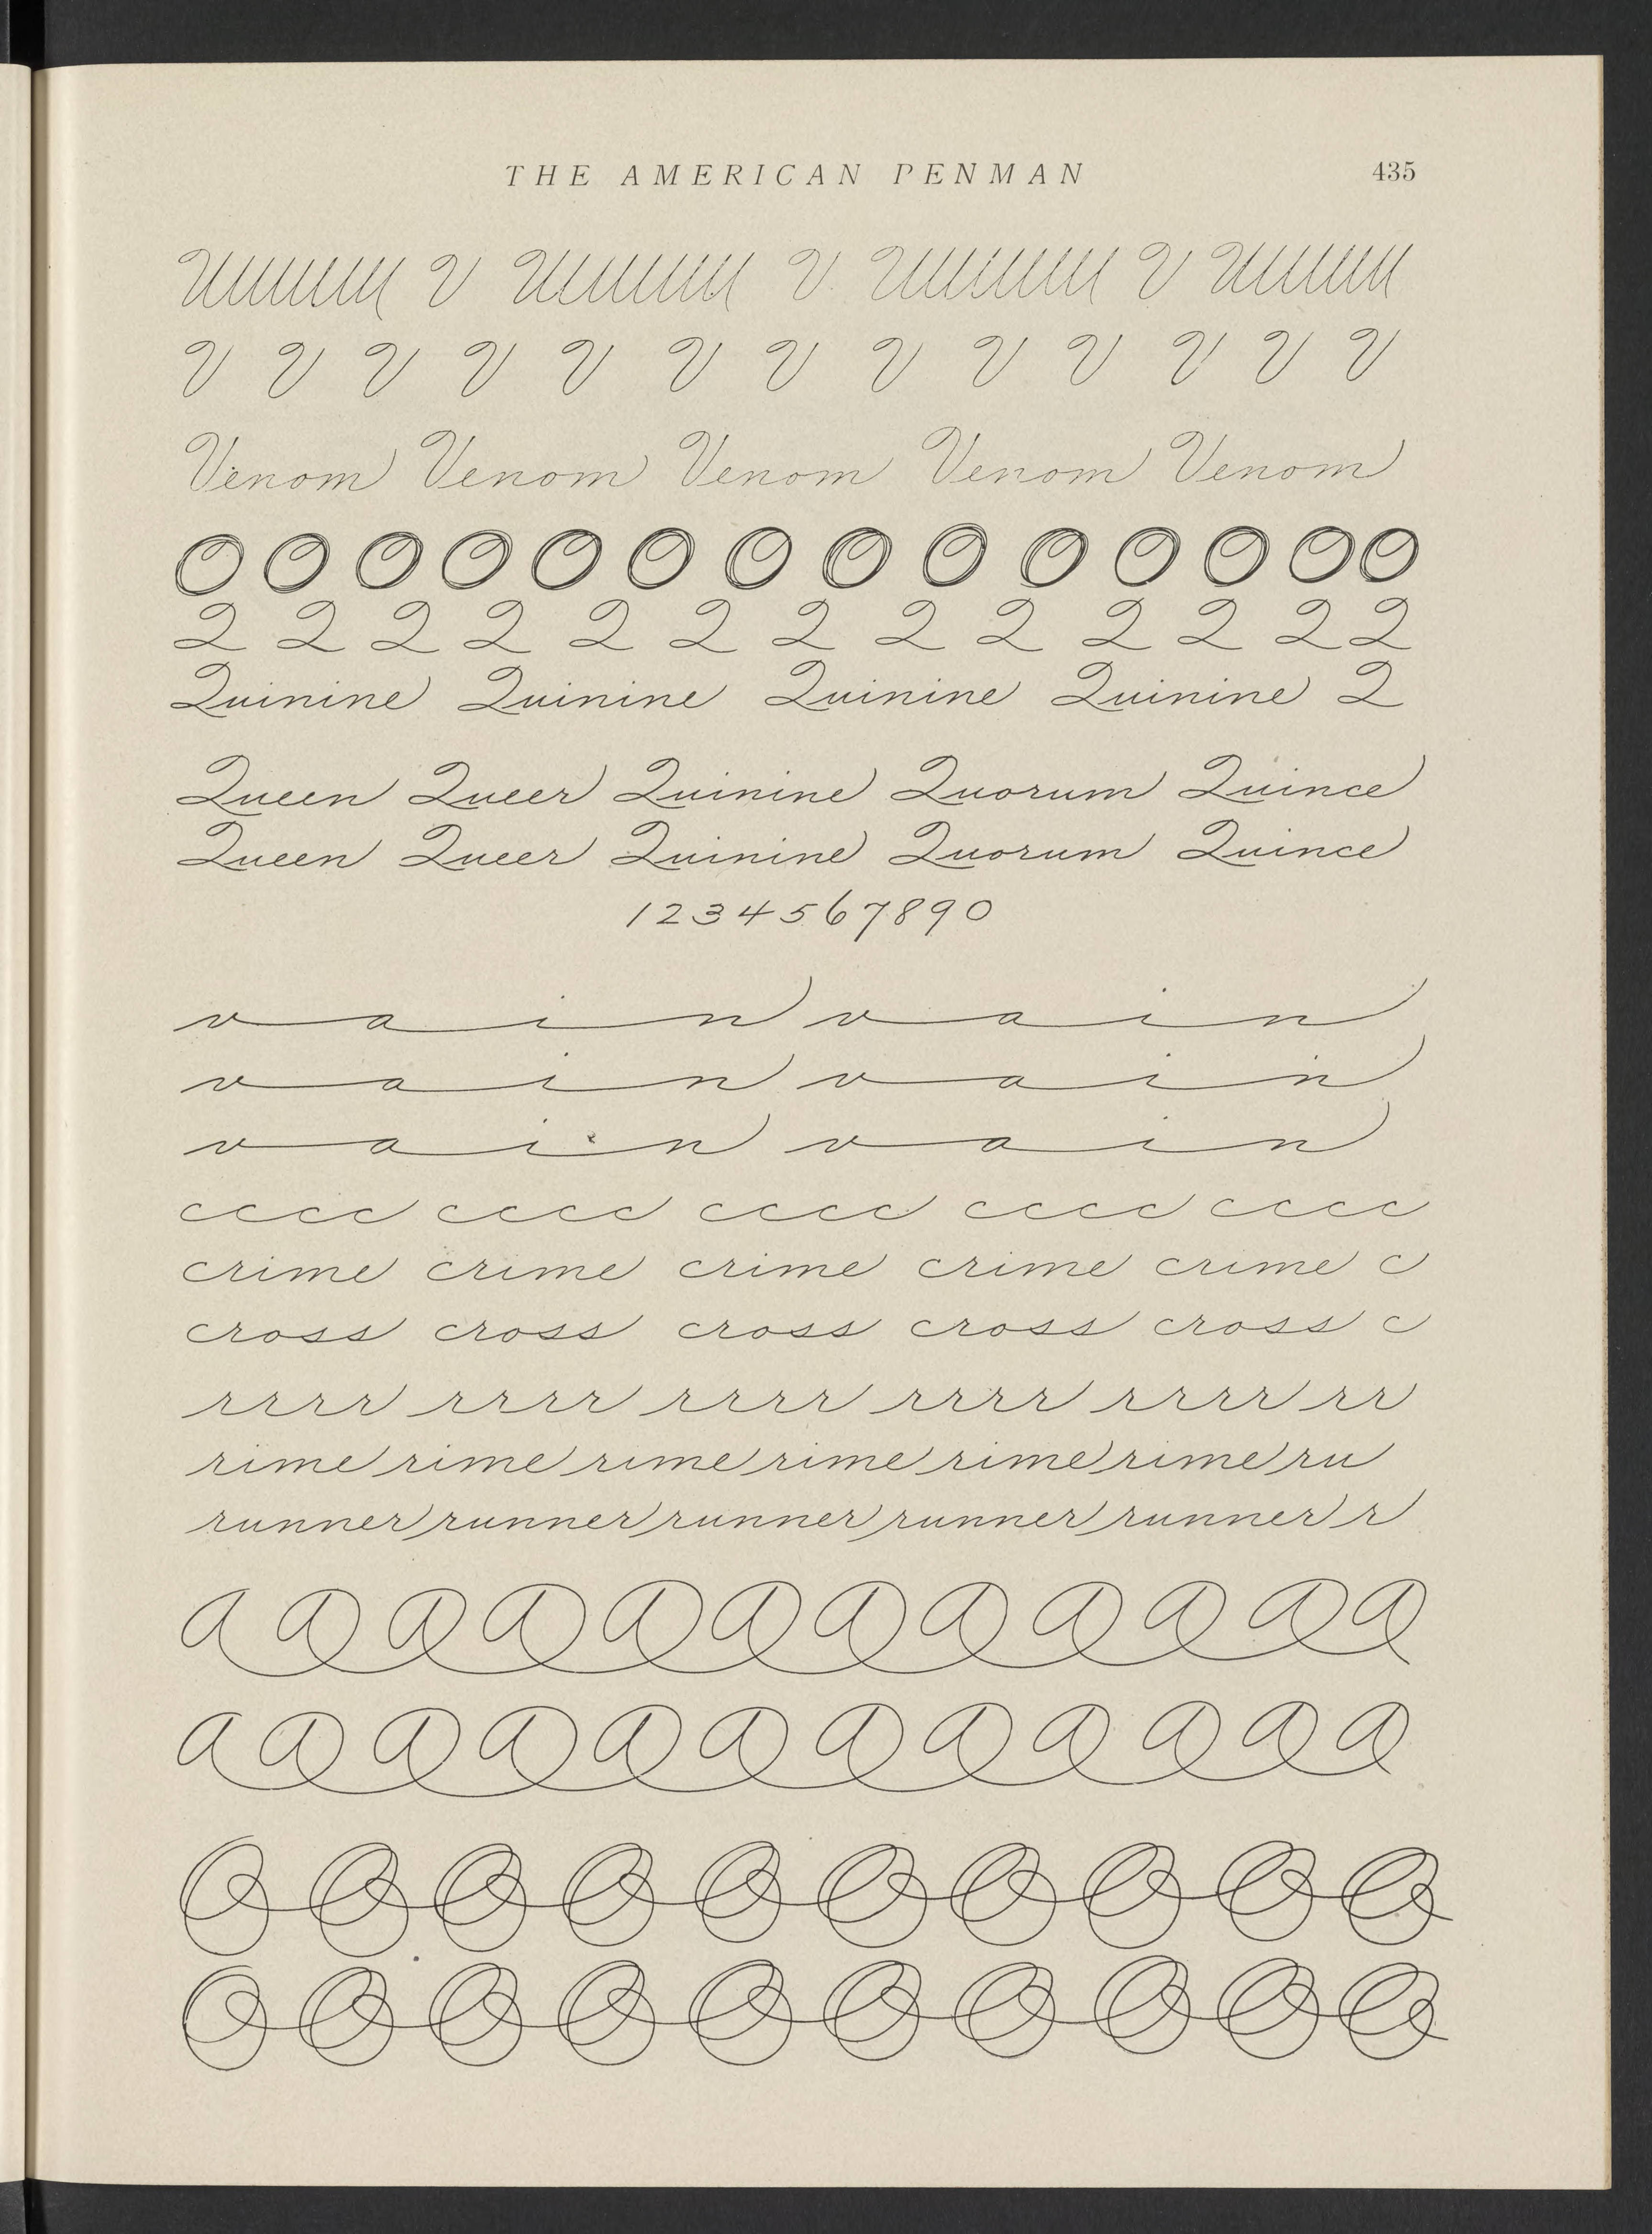 THE AMERICAN PENMAN 435
V V V
V V V V V V V V V V V V V
Venom Venom Venom Venom Venom
O O O O O O O O O O O O O O
Q Q Q Q Q Q Q Q Q Q Q Q Q
Quinine Quinine Quinine Quinine Q
Queen Queer Quinine Quorum Quince
Queen Queer Quinine Quorum Quince
1 2 3 4 5 6 7 8 9 0
vain vain
vain vain
vain vain
cccc cccc cccc cccc cccc
crime crime crime crime crime c
cross cross cross cross cross c
rrrr rrrr rrrr rrrr rrrr rr
rime rime rime rime rime rime ru
runner runner runner runner runner r
a a a a a a a a a a a a
a a a a a a a a a a a a